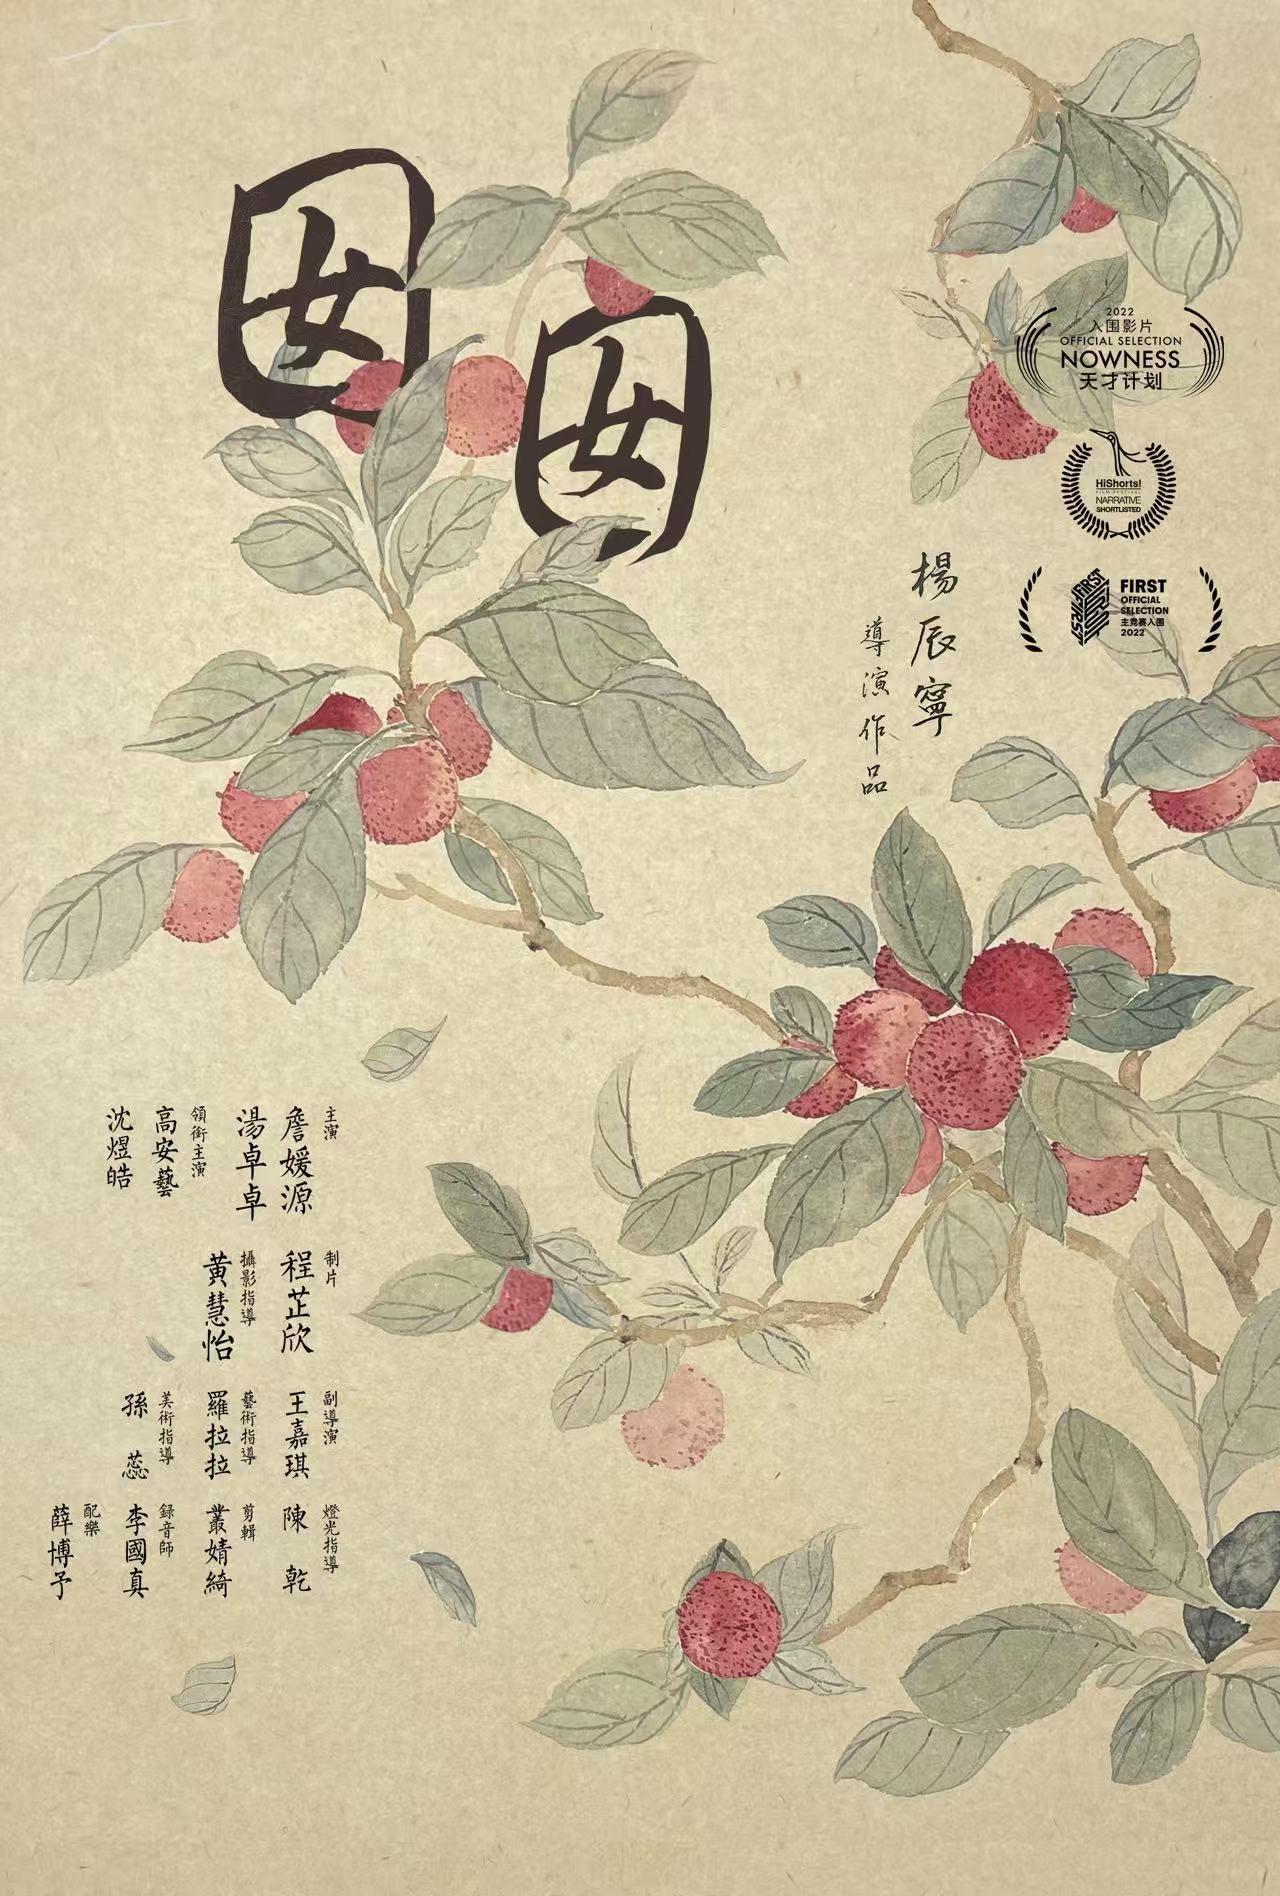 囡囡
2022
入围影片
OFFICIAL SELECTION
NOWNESS
天才计划
HiShorts!
FILM FESTIVAL
NARRATIVE
SHORTLISTED
FIRST
FIRST
OFFICIAL
SELECTION
主竞赛入围
2022
楊辰寧
導演作品
主演
詹媛源
湯卓卓
領銜主演
高安藝
沈煜皓
制片
程芷欣
攝影指導
黃慧怡
副導演
王嘉琪
藝術指導
羅拉拉
美術指導
孫蕊
燈光指導
陳乾
剪輯
叢婧綺
録音師
李國真
配樂
薛博予